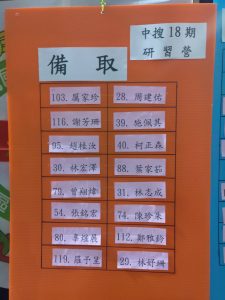 中搜18期
研習營
備取
103. 厲家珍 28. 周建佑
116. 謝芳珊 39. 施佩其
95. 趙桂汝 40. 柯正森
30. 林宏澤 88. 葉家茹
79. 曾翔煒 31. 林志成
54. 張銘宏 74. 陳珍築
80. 辜煜展 112. 鄭雅鈴
119. 羅子呈 29. 林妤珊